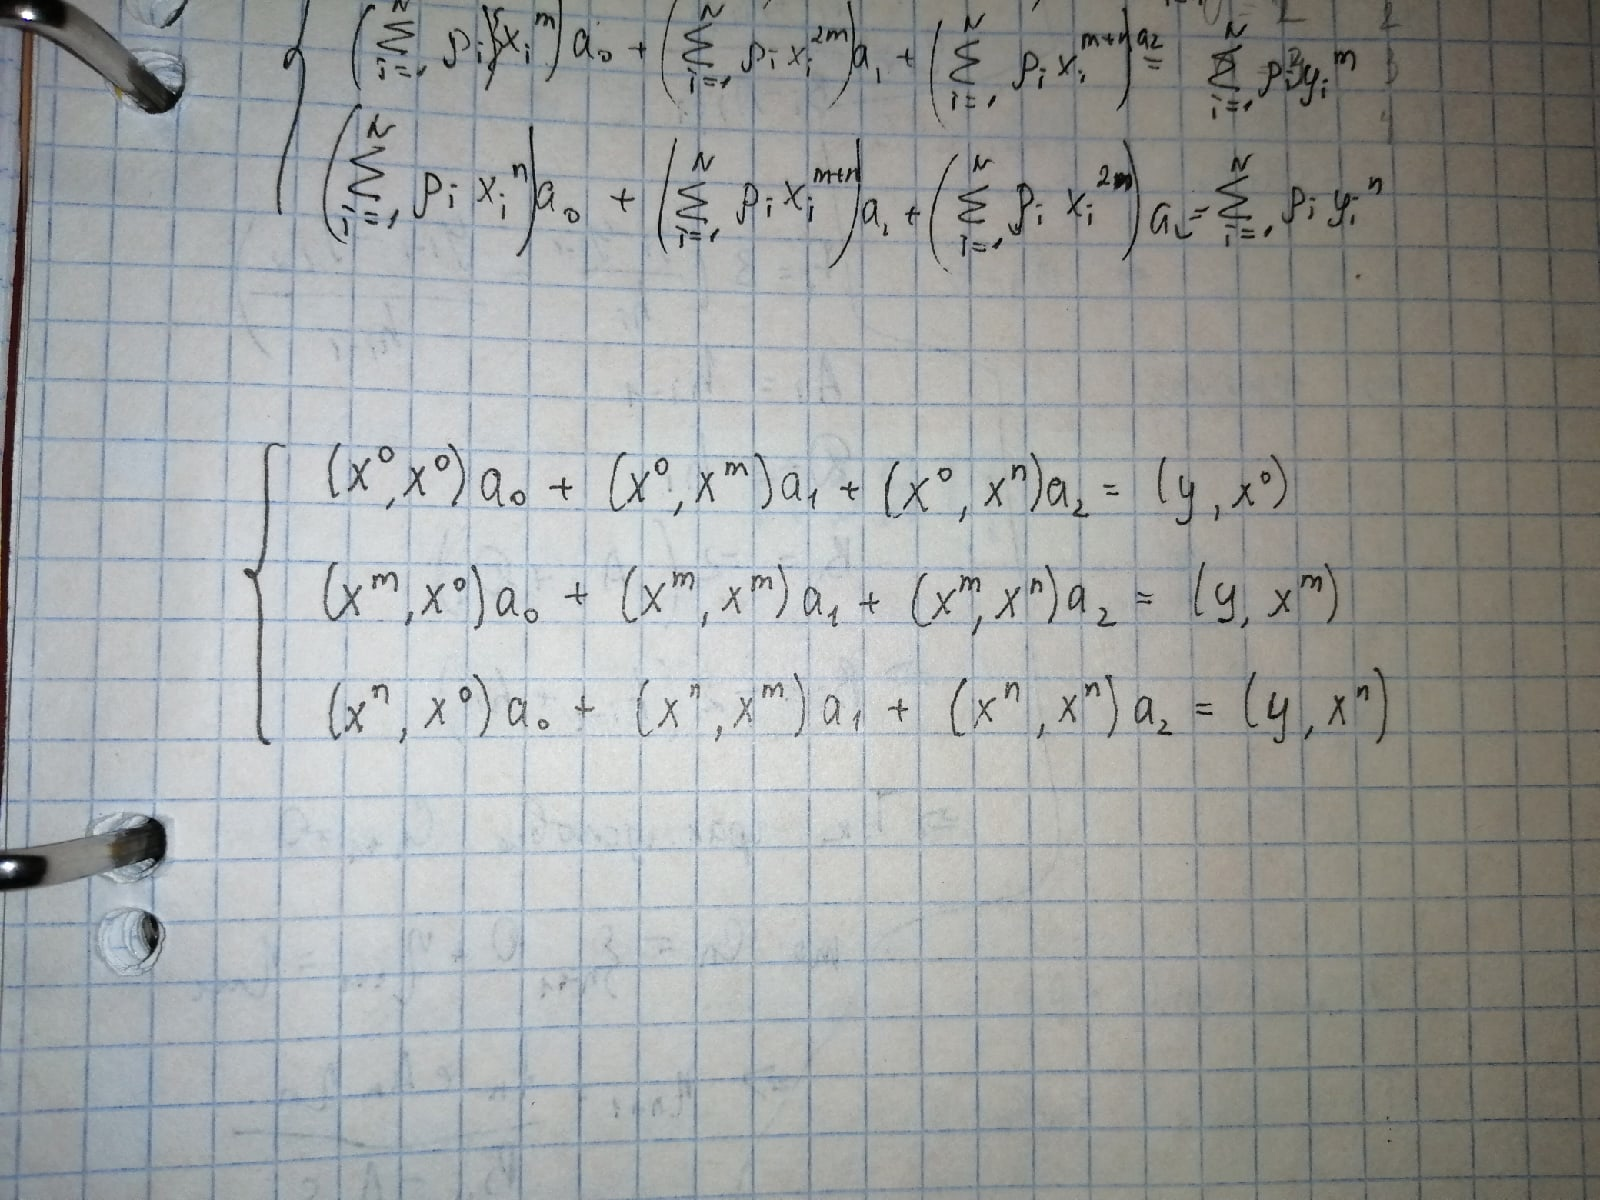 (∑_{i=1}^{N} ρ_i x_i^m) a_0 + (∑_{i=1}^{N} ρ_i x_i^{2m}) a_1 + (∑_{i=1}^{N} ρ_i x_i^{m+n}) a_2 = ∑_{i=1}^{N} ρ_i y_i^m
(∑_{i=1}^{N} ρ_i x_i^n) a_0 + (∑_{i=1}^{N} ρ_i x_i^{m+n}) a_1 + (∑_{i=1}^{N} ρ_i x_i^{2n}) a_2 = ∑_{i=1}^{N} ρ_i y_i^n
(x^0, x^0) a_0 + (x^0, x^m) a_1 + (x^0, x^n) a_2 = (y, x^0)
(x^m, x^0) a_0 + (x^m, x^m) a_1 + (x^m, x^n) a_2 = (y, x^m)
(x^n, x^0) a_0 + (x^n, x^m) a_1 + (x^n, x^n) a_2 = (y, x^n)